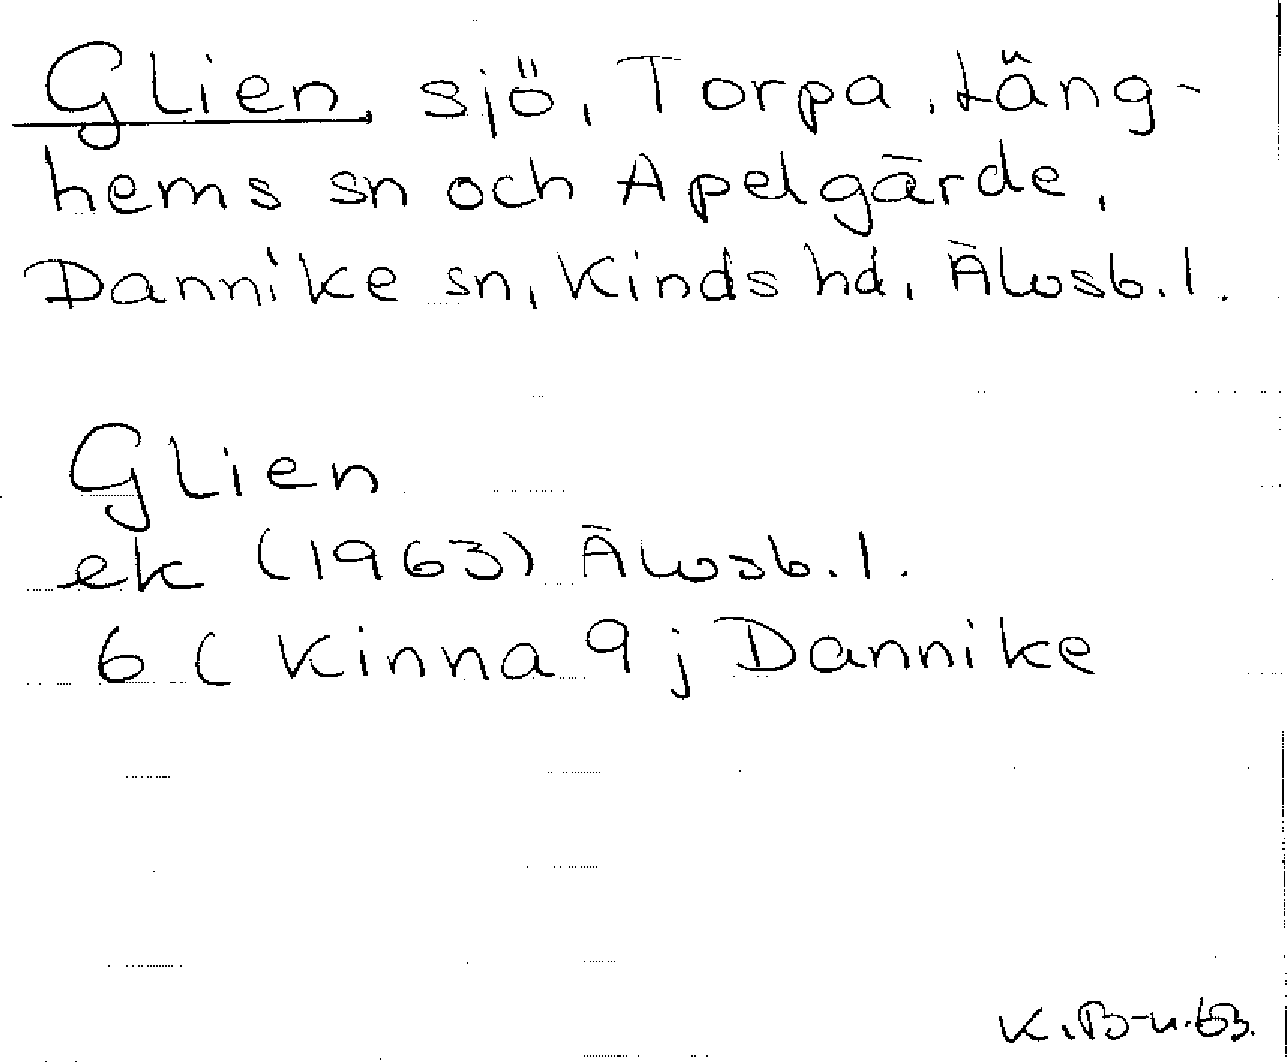 Glien, sjö, Torpa, Läng-
hems sn och Apelgärde,
Dannike sn, Kinds hd, Älvsb. l.
Glien
ek (1963) Älvsb. l.
6 ( Kinna 9 j Dannike
K. B-n. 63.